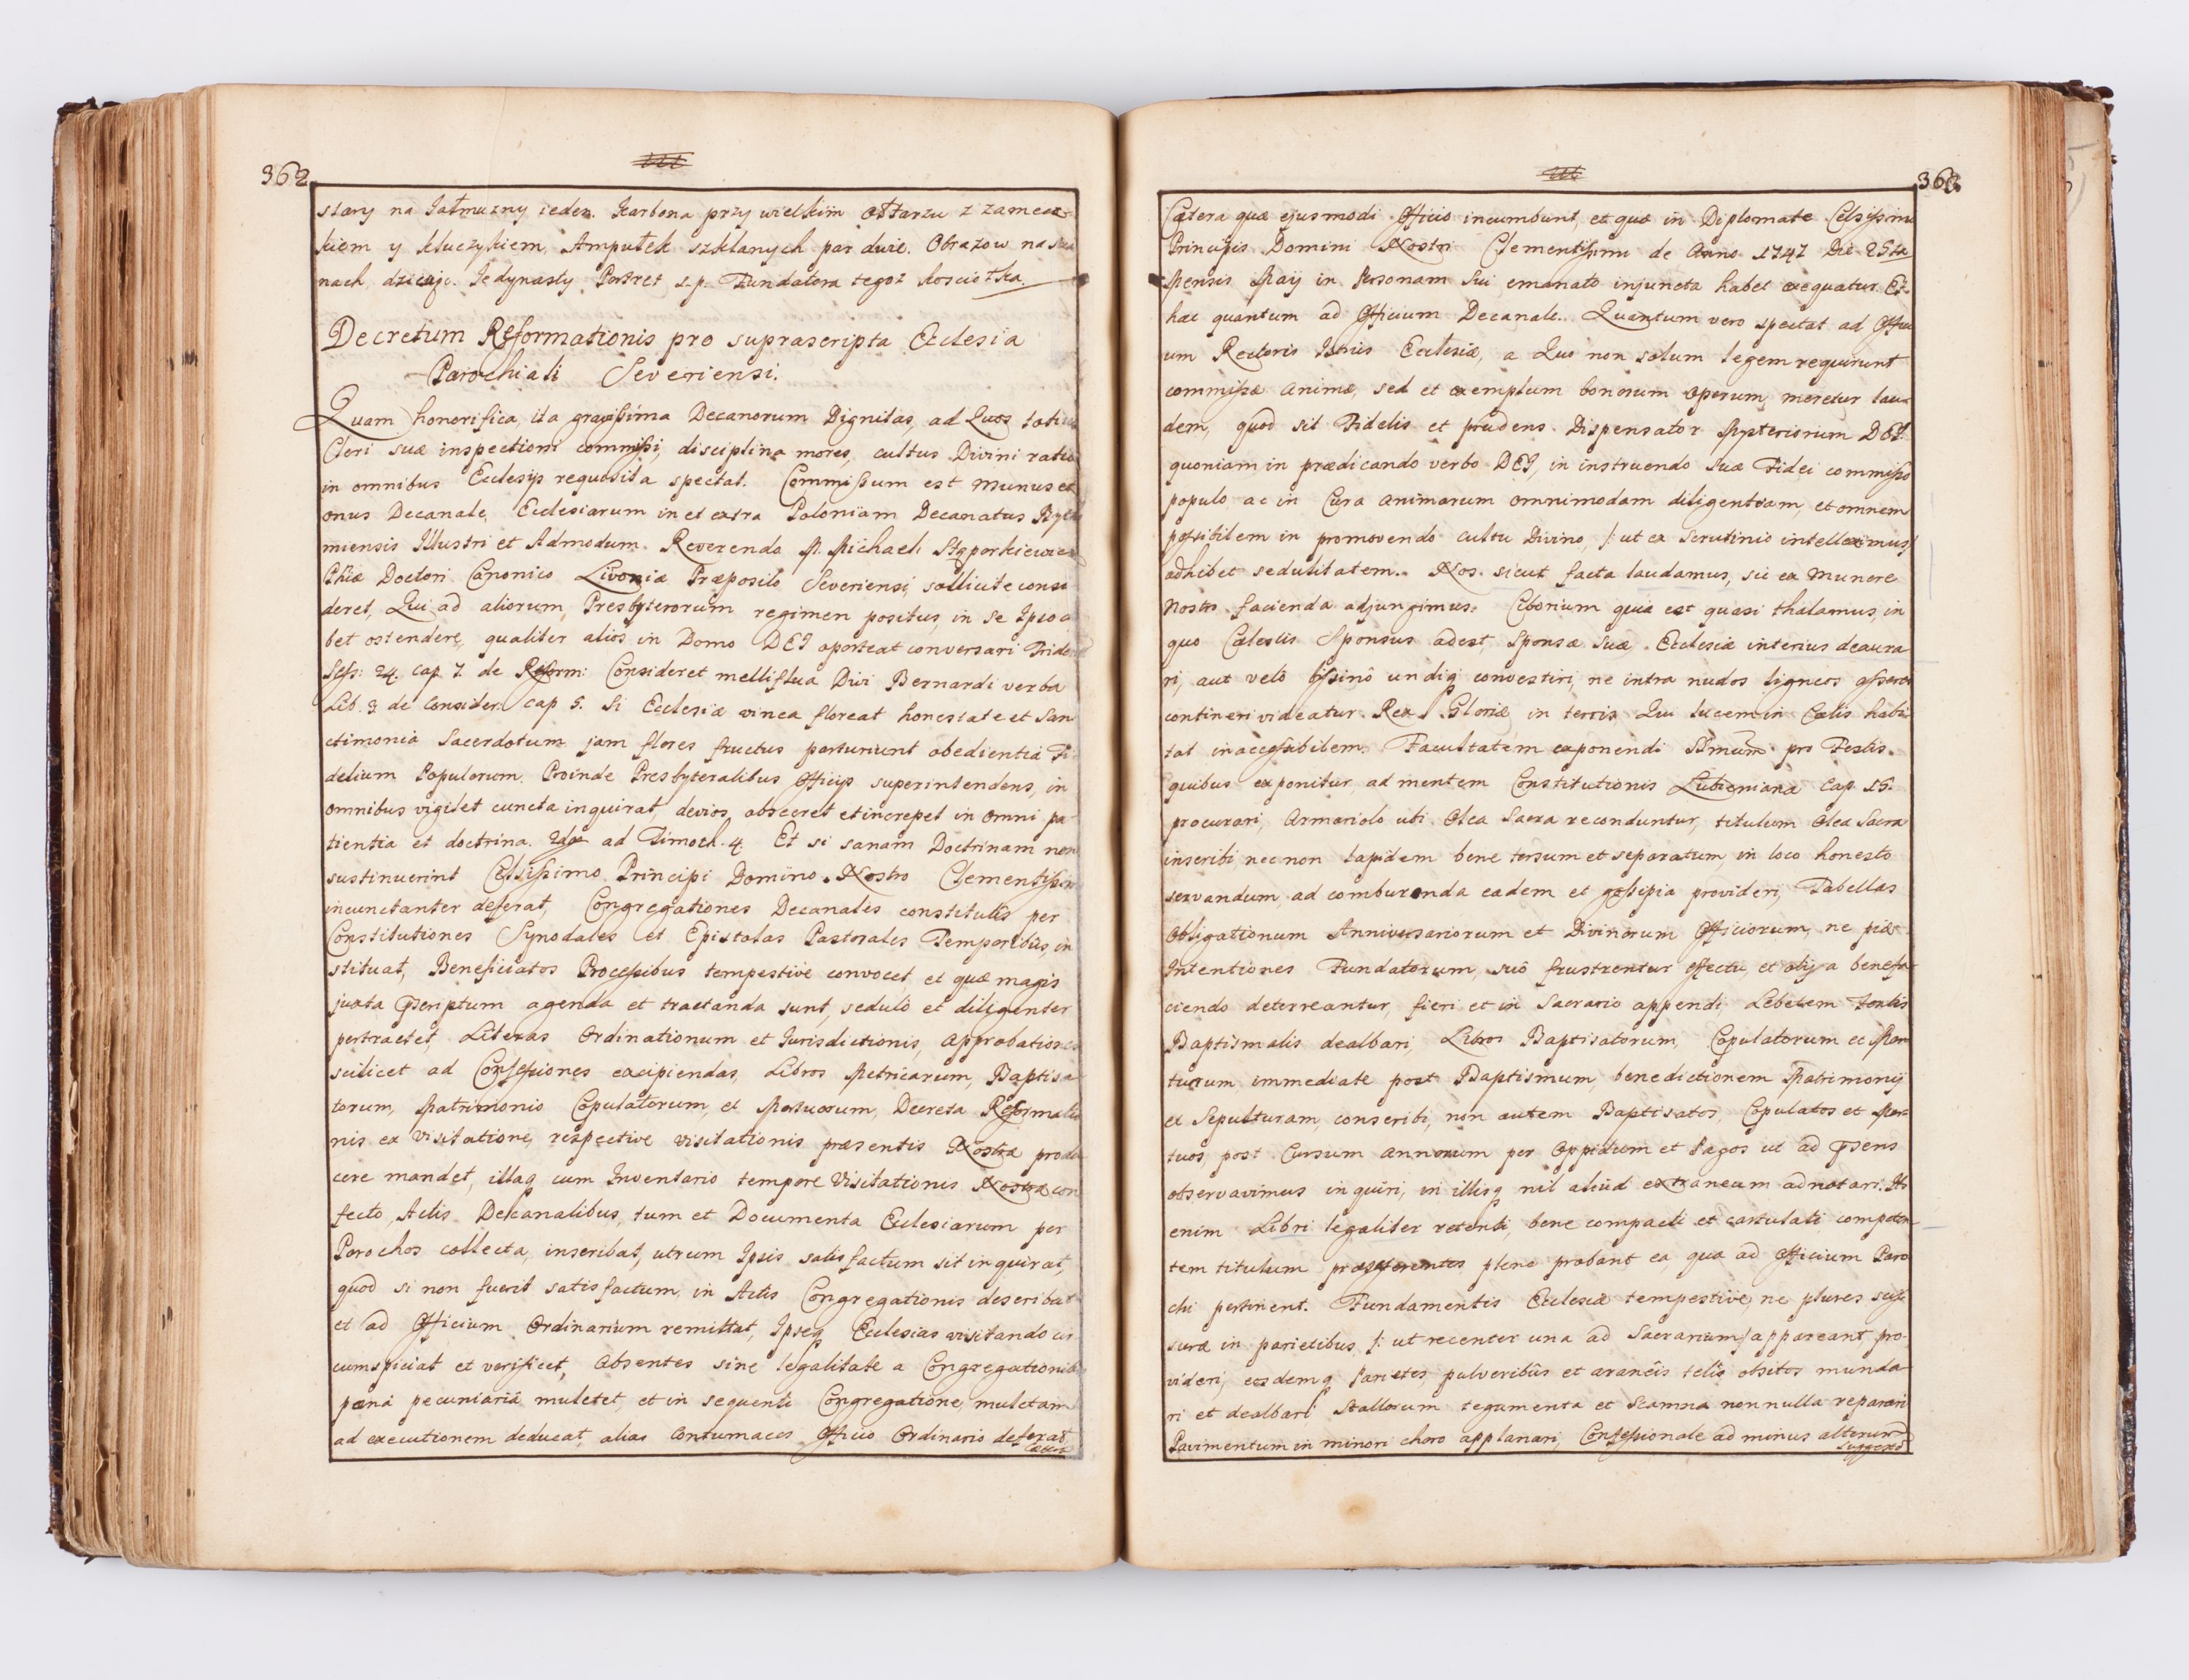 362.
stary na Jałmużny ieden. Karbona przy wielkim ołtarzu z zamecz-
kiem y kluczykiem, Ampułek szklanych par dwie. Obrazow na scia
nach dziesięc. Jedynasty Portret s.p. Fundatora tegoż kosciołka.
Decretum Reformationis pro suprascripta Ecclesia
Parochiali Severiensi.
Quam honorifica, ita gravissima Decanorum Dignitas, ad Quos totius
Cleri suæ inspectioni commissi, disciplina mores, cultus Divini ratio
in omnibus Ecclesijs requisita spectat. Commissum est munus et
onus Decanale, Ecclesiarum in et extra Poloniam Decanatus Byto
miensis Illustri et Admodum Reverendo M. Michaeli Stąporkiewicz
Phiæ Doctori Canonico Livoniæ Præposito Severiensi, sollicite consi
deret, Qui ad aliorum Presbyterorum regimen positus, in se Ipso
bet ostendere, qualiter alios in Domo DEI oporteat conversari Trident
Sess: 24. cap. 7. de Reform: Consideret melliflua Divi Bernardi verba
Lib. 3 de Consider: cap 5. Si Ecclesiæ vinea floreat honestate et San
ctimonia Sacerdotum jam flores fructus parturiunt obedientia Fi
delium Populorum. Proinde Presbyteralibus Officijs superintendens, in
omnibus vigilet cuncta inquirat, devios, obsecret et increpet in omni pa-
tientia et doctrina. 2da ad Timoth. 4. Et si sanam Doctrinam non
sustinuerint Celsissimo Principi Domino Nostro Clementissimo
incunctanter deferat, Congregationes Decanales constitutis per
Constitutiones Synodales et Epistolas Pastorales Temporibus, in
stituat, Beneficiatos Processibus tempestive convocet, et quæ magis
juxta Pscriptum agenda et tractanda sunt, sedulo et diligenter
pertractet, Literas Ordinationum et Jurisdictionis, Approbationes
scilicet ad Confessiones excipiendas, Libros Metricarum, Baptisa
torum, Matrimonio Copulatorum, et Mortuorum, Decreta Reformatio
nis ex visitatione, respective visitationis præsentis Nostræ produ
cere mandet, illaq cum Inventario tempore Visitationis Nostræ con
fecto, Actis Decanalibus, tum et Documenta Ecclesiarum per
Parochos collecta, inseribat, utrum Ipsis satisfactum sit inquirat,
quod si non fuerit satisfactum, in Actis Congregationis describat
et ad Officium Ordinarium remittat, Ipseq Ecclesias visitando cir
cumspiciat et verificet, Absentes sine legalitate a Congregationibus
pæna pecuniaria mulctet, et in sequenti Congregatione, mulctam
ad executionem deducat, alias Contumaces Officio Ordinario deferat,
Cætera
363.
Cætera quæ ejusmodi Officio incumbunt, et quæ in Diplomate Celsissimi
Principis Domini Nostri Clementissimi de Anno 1747 Die 25ta
Mensis Maij in Personam Sui emanato injuncta habet exequatur. Et
hæc quantum ad Officium Decanale. Quantum vero spectat ad Offici
um Rectoris Istius Ecclesiæ, a Quo non solum legem requirunt
commissæ animæ, sed et exemplum bonorum operum, meretur lau-
dem, quod sit Fidelis et prudens Dispensator Mysteriorum DEI
quoniam in prædicando verbo DEI, in instruendo suæ Fidei commisso
populo ac in Cura animarum omnimodam diligentiam, et omnem
possibilem in promovendo cultu Divino, /: ut ex Scrutinio intelleximus/
adhibet sedulitatem. Nos sicut facta laudamus, sic ex Munere
Nostro facienda adjungimus: Ciborium quia est quasi thalamus, in
quo Cælestis Sponsus adest, Sponsæ suæ Ecclesiæ interius deaura
ri, aut velo bissinô undiq convestiri, ne intra nudos ligneos asseres
contineri videatur Rex Gloriæ in terris Qui lucem in Cælis habi-
tat inaccessibilem. Facultatem exponendi SSmum pro Festis
quibus exponitur, ad mentem Constitutionis Lubieniana Cap. 15.
procurari, Armariolo ubi Olea Sacra reconduntur, titulum Olea Sacra
inscribi nec non lapidem bene tersum et separatum, in loco honesto
servandum, ad comburenda eadem et gossipia provideri, Tabellas
Obligationum Anniversariorum et Divinorum Officiorum, ne piæ
Intentiones Fundatorum, suô frustrentur effectu, et alij a benefa-
ciendo deterreantur, fieri et in Sacrario appendi, Lebetem Fontis
Baptismalis dealbari, Libros Baptisatorum, Copulatorum et Mor
tuorum, immediate post Baptismum, benedictionem Matrimonij
et Sepulturam, conscribi, non autem Baptisatos, Copulatos et Mor-
tuos, post Cursum annorum per Oppidum et Pagos ut ad Psens
observavimus inquiri, in illisq nil aliud extraneum adnotari. Ii
enim Libri legaliter retenti, bene compacti et cartulati, competen
tem titulum præseferentes plene probant ea, quæ ad Officium Paro
chi pertinent. Fundamentis Ecclesiæ tempestive, ne plures scis
suræ in parietibus, /: ut recenter una ad Sacrarium/ appareant, pro-
videri, eosdemq Parietes, pulveribûs et araneis telis obsitos munda
ri et dealbari Stallorum tegumenta et Scamna nonnulla reparari
Pavimentum in minori choro applanari, Confessionale ad minus alterum